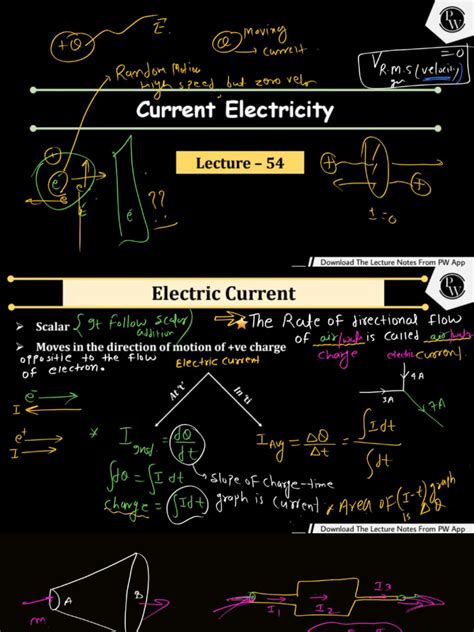 +Q
E
Q Moving
current
PW
V =0
R.M.S (velocity)
Random Motion
High speed but zero velo
Current Electricity
Lecture – 54
e
e
??
I=0
Download The Lecture Notes From PW App
Electric Current
PW
Scalar {It follow scalar addition}
The Rate of directional flow
of air/water is called air/water
charge electric current.
Moves in the direction of motion of +ve charge
opposite to the flow
of electron.
Electric Current
At 't'
In 't'
4A
3A
7A
e⁻
I
e⁺
I
* I inst = dQ/dt
I Avg = ΔQ/Δt = ∫I dt / ∫dt
∫dQ = ∫I dt
slope of charge-time
graph is current.
charge = ∫Idt
* Area of (I-t) graph
is ΔQ
Download The Lecture Notes From PW App
A
B
I₁
I₂
I₃